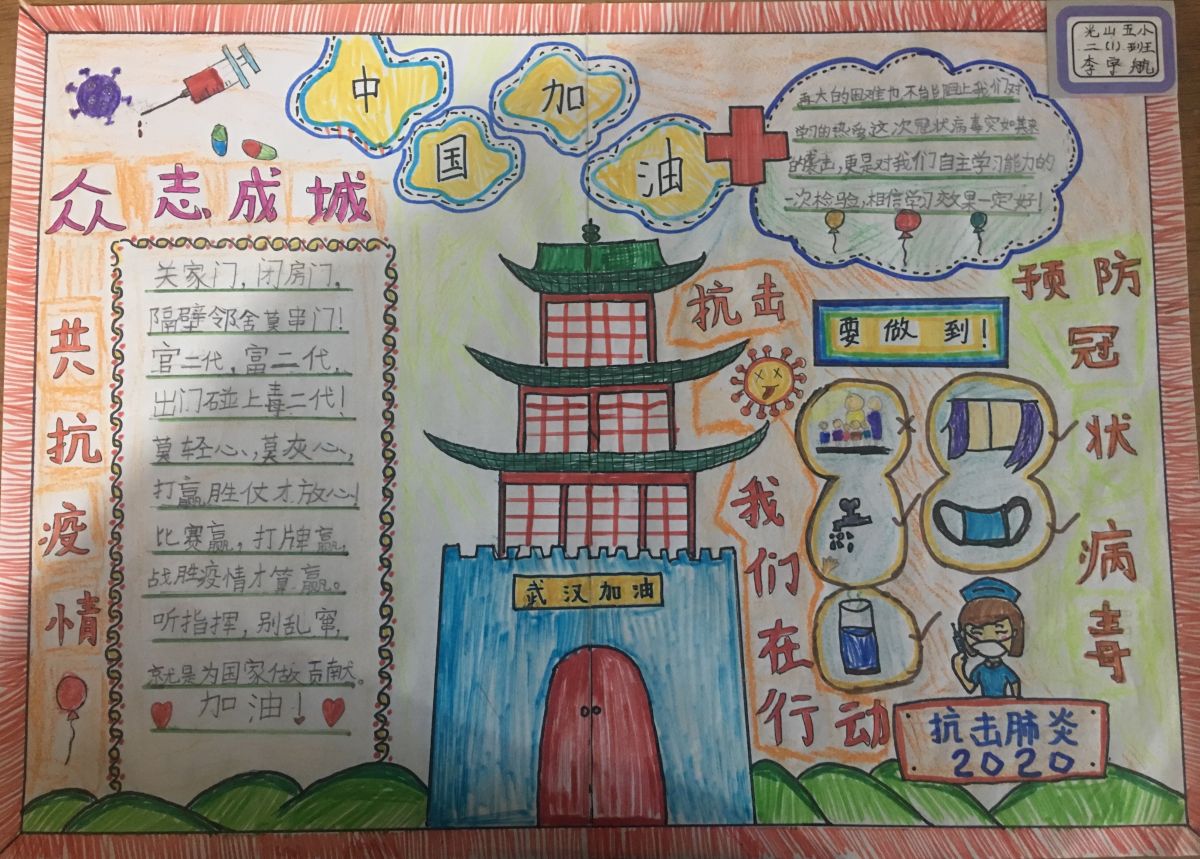 光山五小
二(1)班
李宇航
中国加油
再大的困难也不能阻止我们对
学习的热爱,这次冠状病毒突如其来
的袭击,更是对我们自主学习能力的
一次检验,相信学习效果一定好!
众志成城
共抗疫情
关家门,闭房门,
隔壁邻舍莫串门!
官二代,富二代,
出门碰上毒二代!
莫轻心,莫灰心,
打赢胜仗才放心!
比赛赢,打牌赢,
战胜疫情才算赢。
听指挥,别乱窜,
就是为国家做贡献。
加油!
武汉加油
抗击
我们在行动
要做到!
预防
冠状病毒
抗击肺炎
2020